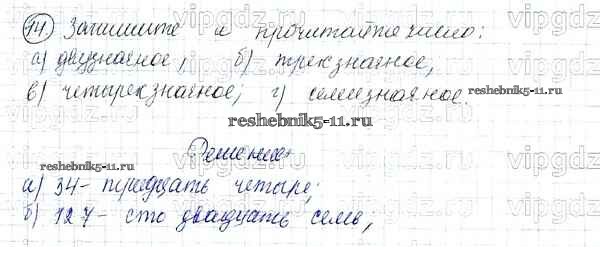 14 Запишите и прочитайте число:
а) двузначное; б) трехзначное;
в) четырехзначное; г) семизначное.
reshebnik5-11.ru
reshebnik5-11.ru
Решение
reshebnik5-11.ru
а) 34 - тридцать четыре;
б) 127 - сто двадцать семь;